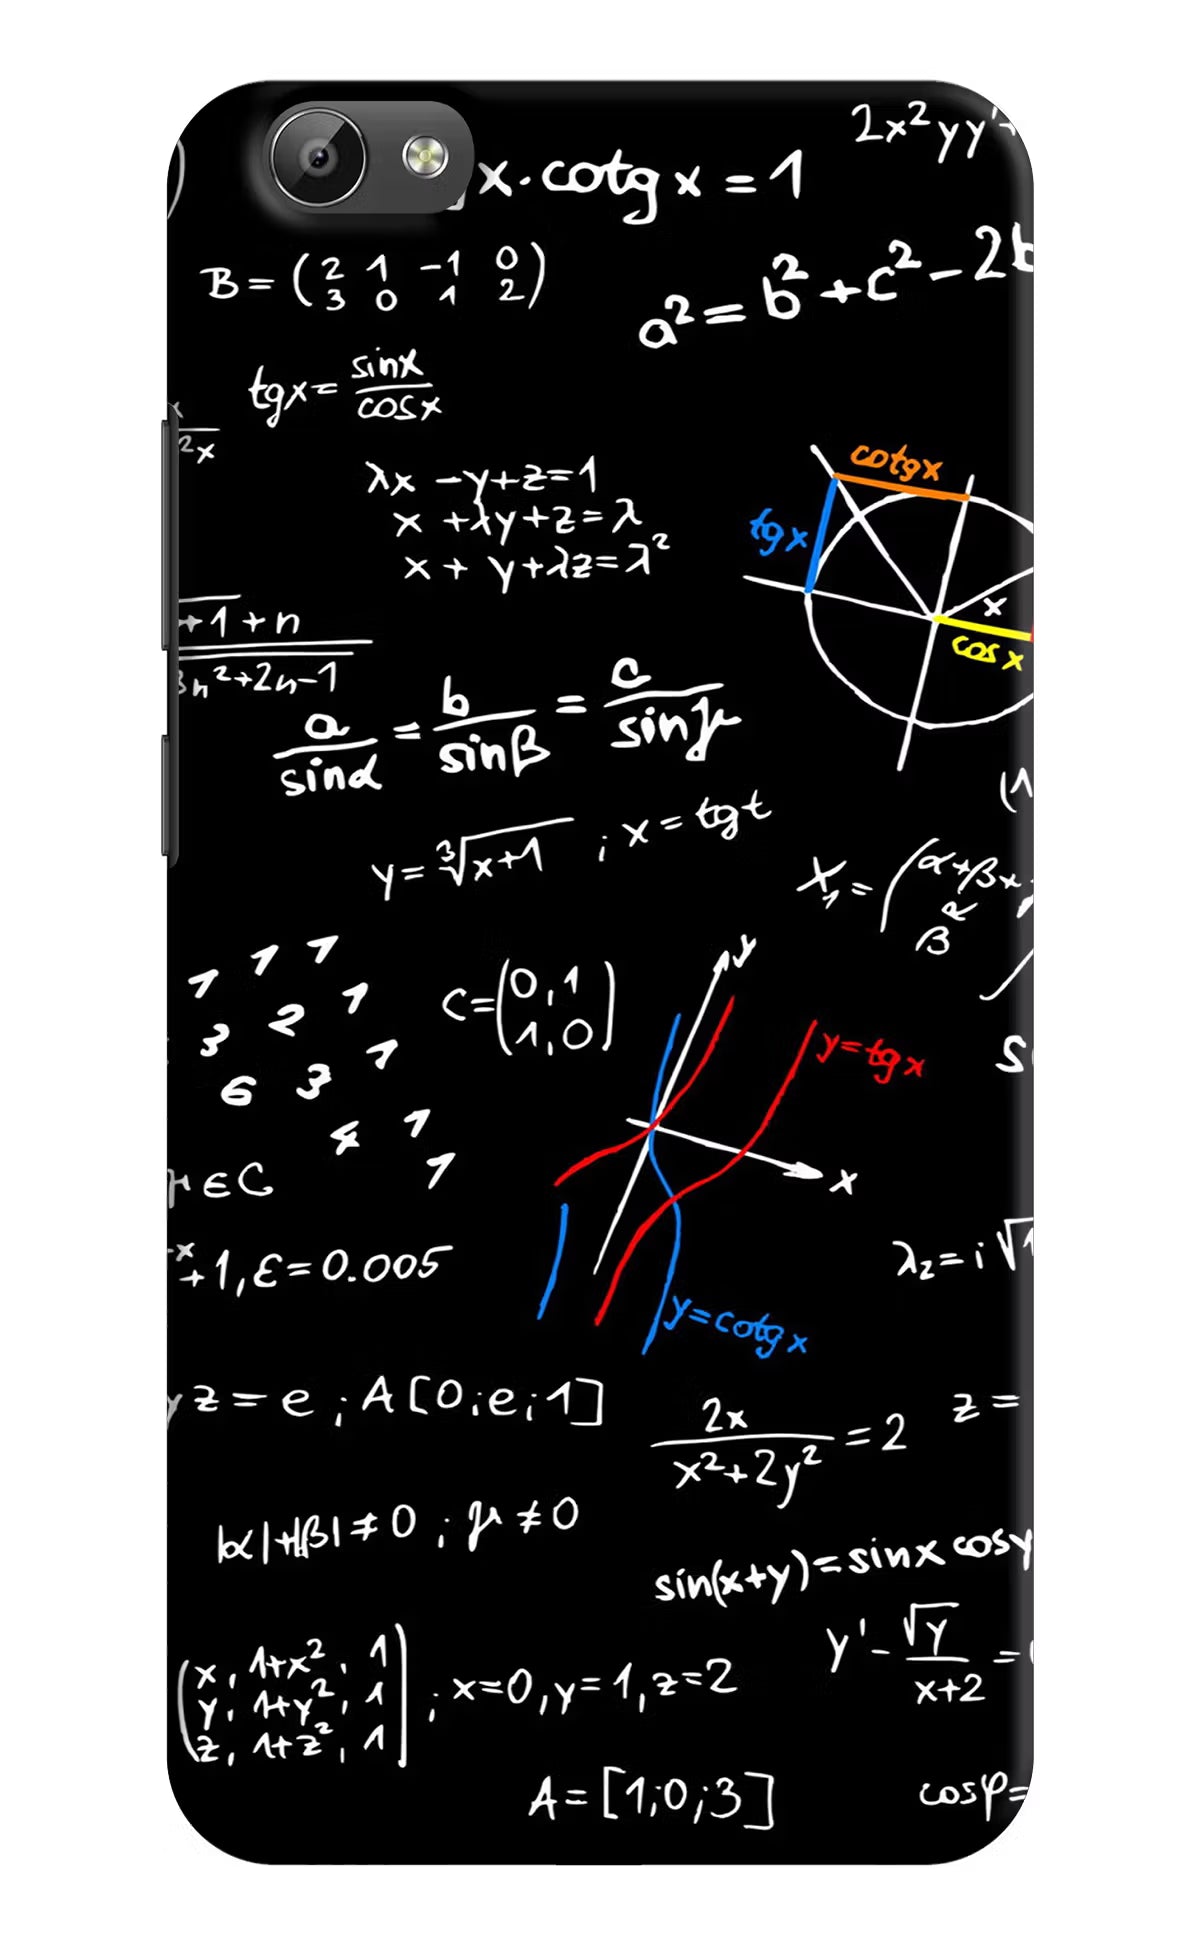 2x²yy'+
x·cotg x = 1
B = (2 1 -1 0
3 0 1 2)
a² = b² + c² - 2b
tgx = sinx
cosx
2x
λx - y + z = 1
x + λy + z = λ
x + y + λz = λ²
cotgx
tgx
x
cos x
+1 + n
3n²+2n-1
a/sinα = b/sinβ = c/sinγ
y = ³√x+1 ; x = tgt
X₁ = (α+βx
β R
1 1 1
3 2 1
6 3 1
4 1
1
C = (0,1
1,0)
y
y=tgx
x
y=cotgx
∈ C
+1, ε = 0.005
λ₂ = i√
z = e ; A[0;e;1]
2x
x²+2y² = 2
z =
|α|+|β| ≠ 0 ; μ ≠ 0
sin(x+y) = sinx cosy
y' - √y
x+2 =
(x, 1+x², 1
y, 1+y², 1
z, 1+z², 1) ; x=0, y=1, z=2
A = [1;0;3]
cosφ=